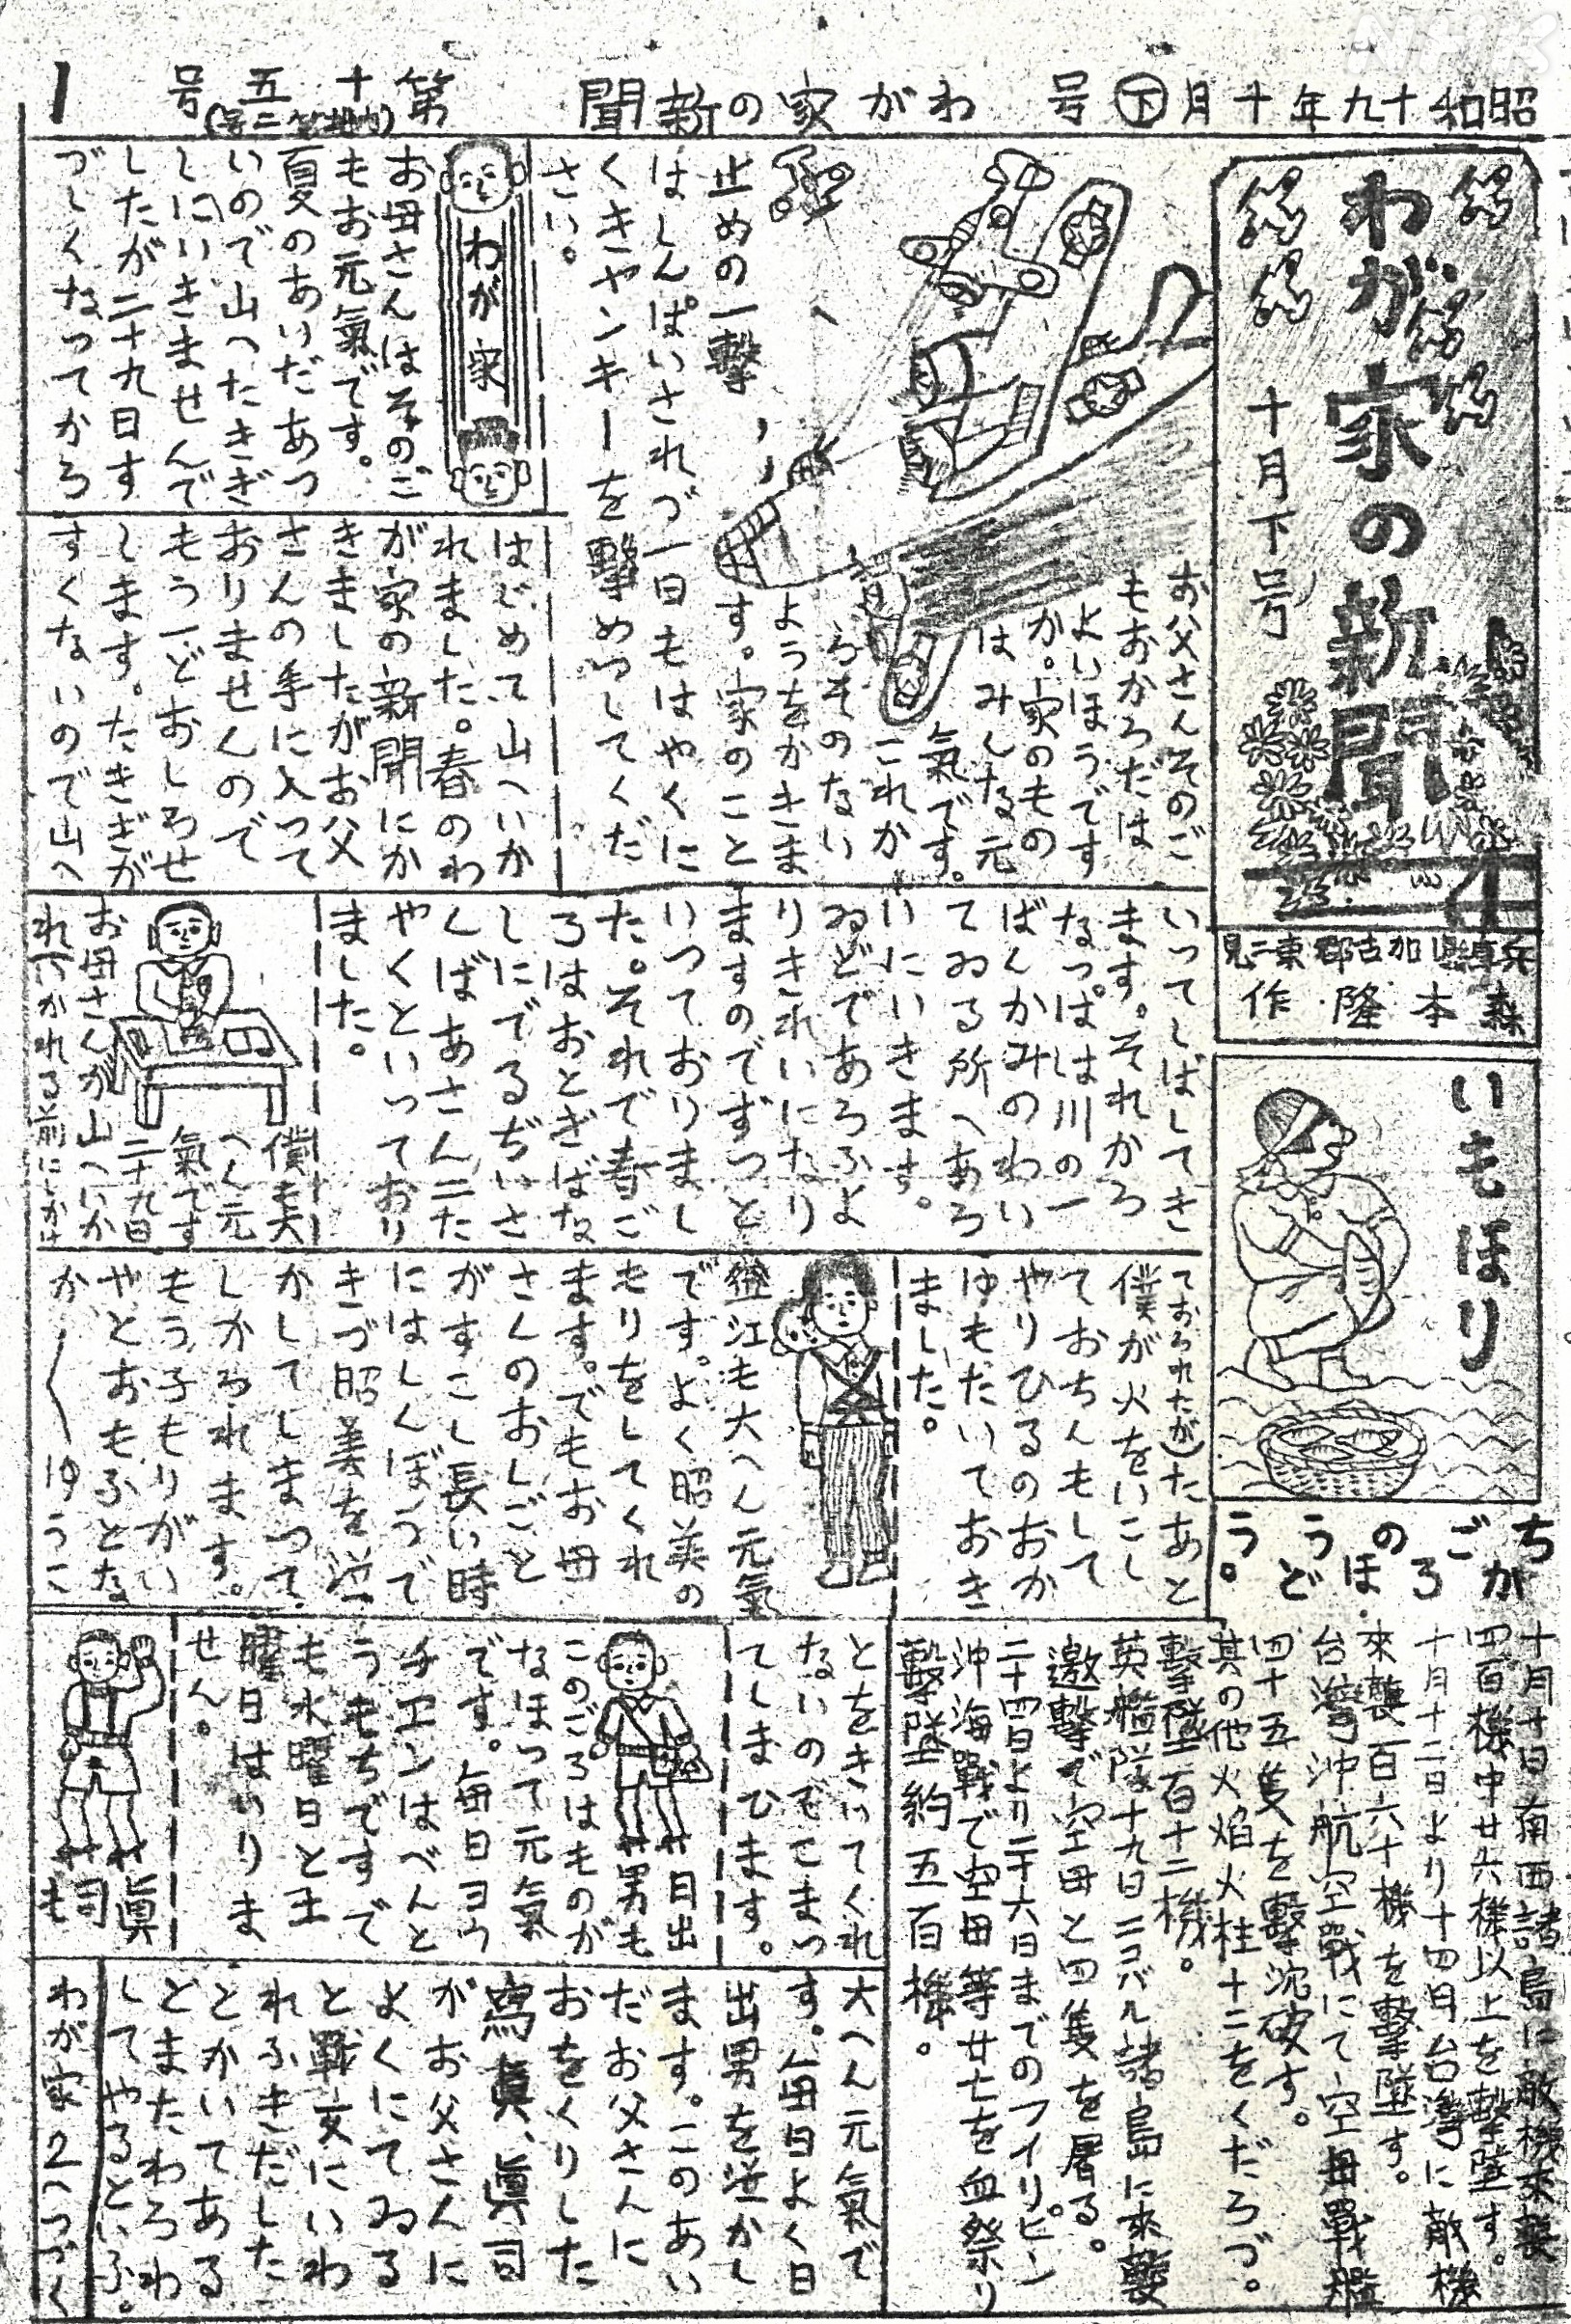 NHK
昭和十九年十月下号　わがの家の新聞　第十五号
(内地第二号)
1
わが家の新聞
十月下号
兵庫県加古郡東二見
森本隆作
いもほり
お父さんそのご
もおからだは
よいほうです
か。家のもの
はみんな元
氣です。
これか
らそのない
ようをかきま
す。家のこと
はしんぱいされづ一日もはやくに
くきヤンキーを撃めつしてくだ
さい。
止めの一撃
わが家
お母さんはそのご
もお元氣です。
夏のあいだあつ
いので山へたきぎ
しにいきませんで
したが二十九日す
づしくなってから
はじめて山へいか
れました。春のわ
が家の新聞にか
きましたがお父
さんの手に入って
おりませんので
もう一どおしらせ
します。たきぎが
すくないので山へ
いってしばしてき
ます。それから
なっぱは川の一
ばんかみのわい
てゐる所へあら
いにいきます。
ゐどであらふよ
りきれいになり
ますのでずっと
いっておりまし
た。それで春ご
ろはおとぎばな
しにでるぢいさ
んばあさん二た
やくといっており
ました。
僕も大
へん元
氣です
二十九日
お母さんが山へいか
れ(いかれる前にしかけ
ておられたが)たあと
僕が火をいこし
ておちんもして
やりひるのおか
ゆもだいておき
ました。
澄江も大へん元氣
です。よく昭美の
もりをしてくれ
ます。でもお母
さんのおしごと
がすこし長い時
にはしんぼうで
きづ昭美を泣
かしてしまって
しかられます。
もう子もりがい
やとおもふとな
かゆうこ
とをきいてくれ
ないのでこまっ
てしまひます。
日出
男も
このごろはものが
なほって元氣
です。毎日ヨウ
チエンはべんと
うもちですで
も水曜日と土
曜日はいりま
せん。
眞
司も
大へん元氣で
す。毎日よく日
出男を泣かし
ます。このあい
だお父さんに
おをくりした
寫眞、眞司
がお父さんに
よくにてゐる
と戰友にいわ
れふきだした
とかいてある
とまたわらわ
してやるといふ。
わが家2へつづく
ちかごろのほうどう。
十月十日南西諸島に敵機來襲
四百機中廿六機以上を撃墜す。
十月十二日より十四日台灣に敵機
來襲百六十機を撃墜す。
台灣沖航空戰にて空母戰艦
四十五隻を撃沈破す。
其の他火焔火柱十二をくだらづ。
撃墜百十二機。
英艦隊十九日ニコバル諸島に來襲
邀撃で空母と四隻を屠る。
二十四日より二十六日までのフイリピン
沖海戰で空母等廿七を血祭り
撃墜約五百機。